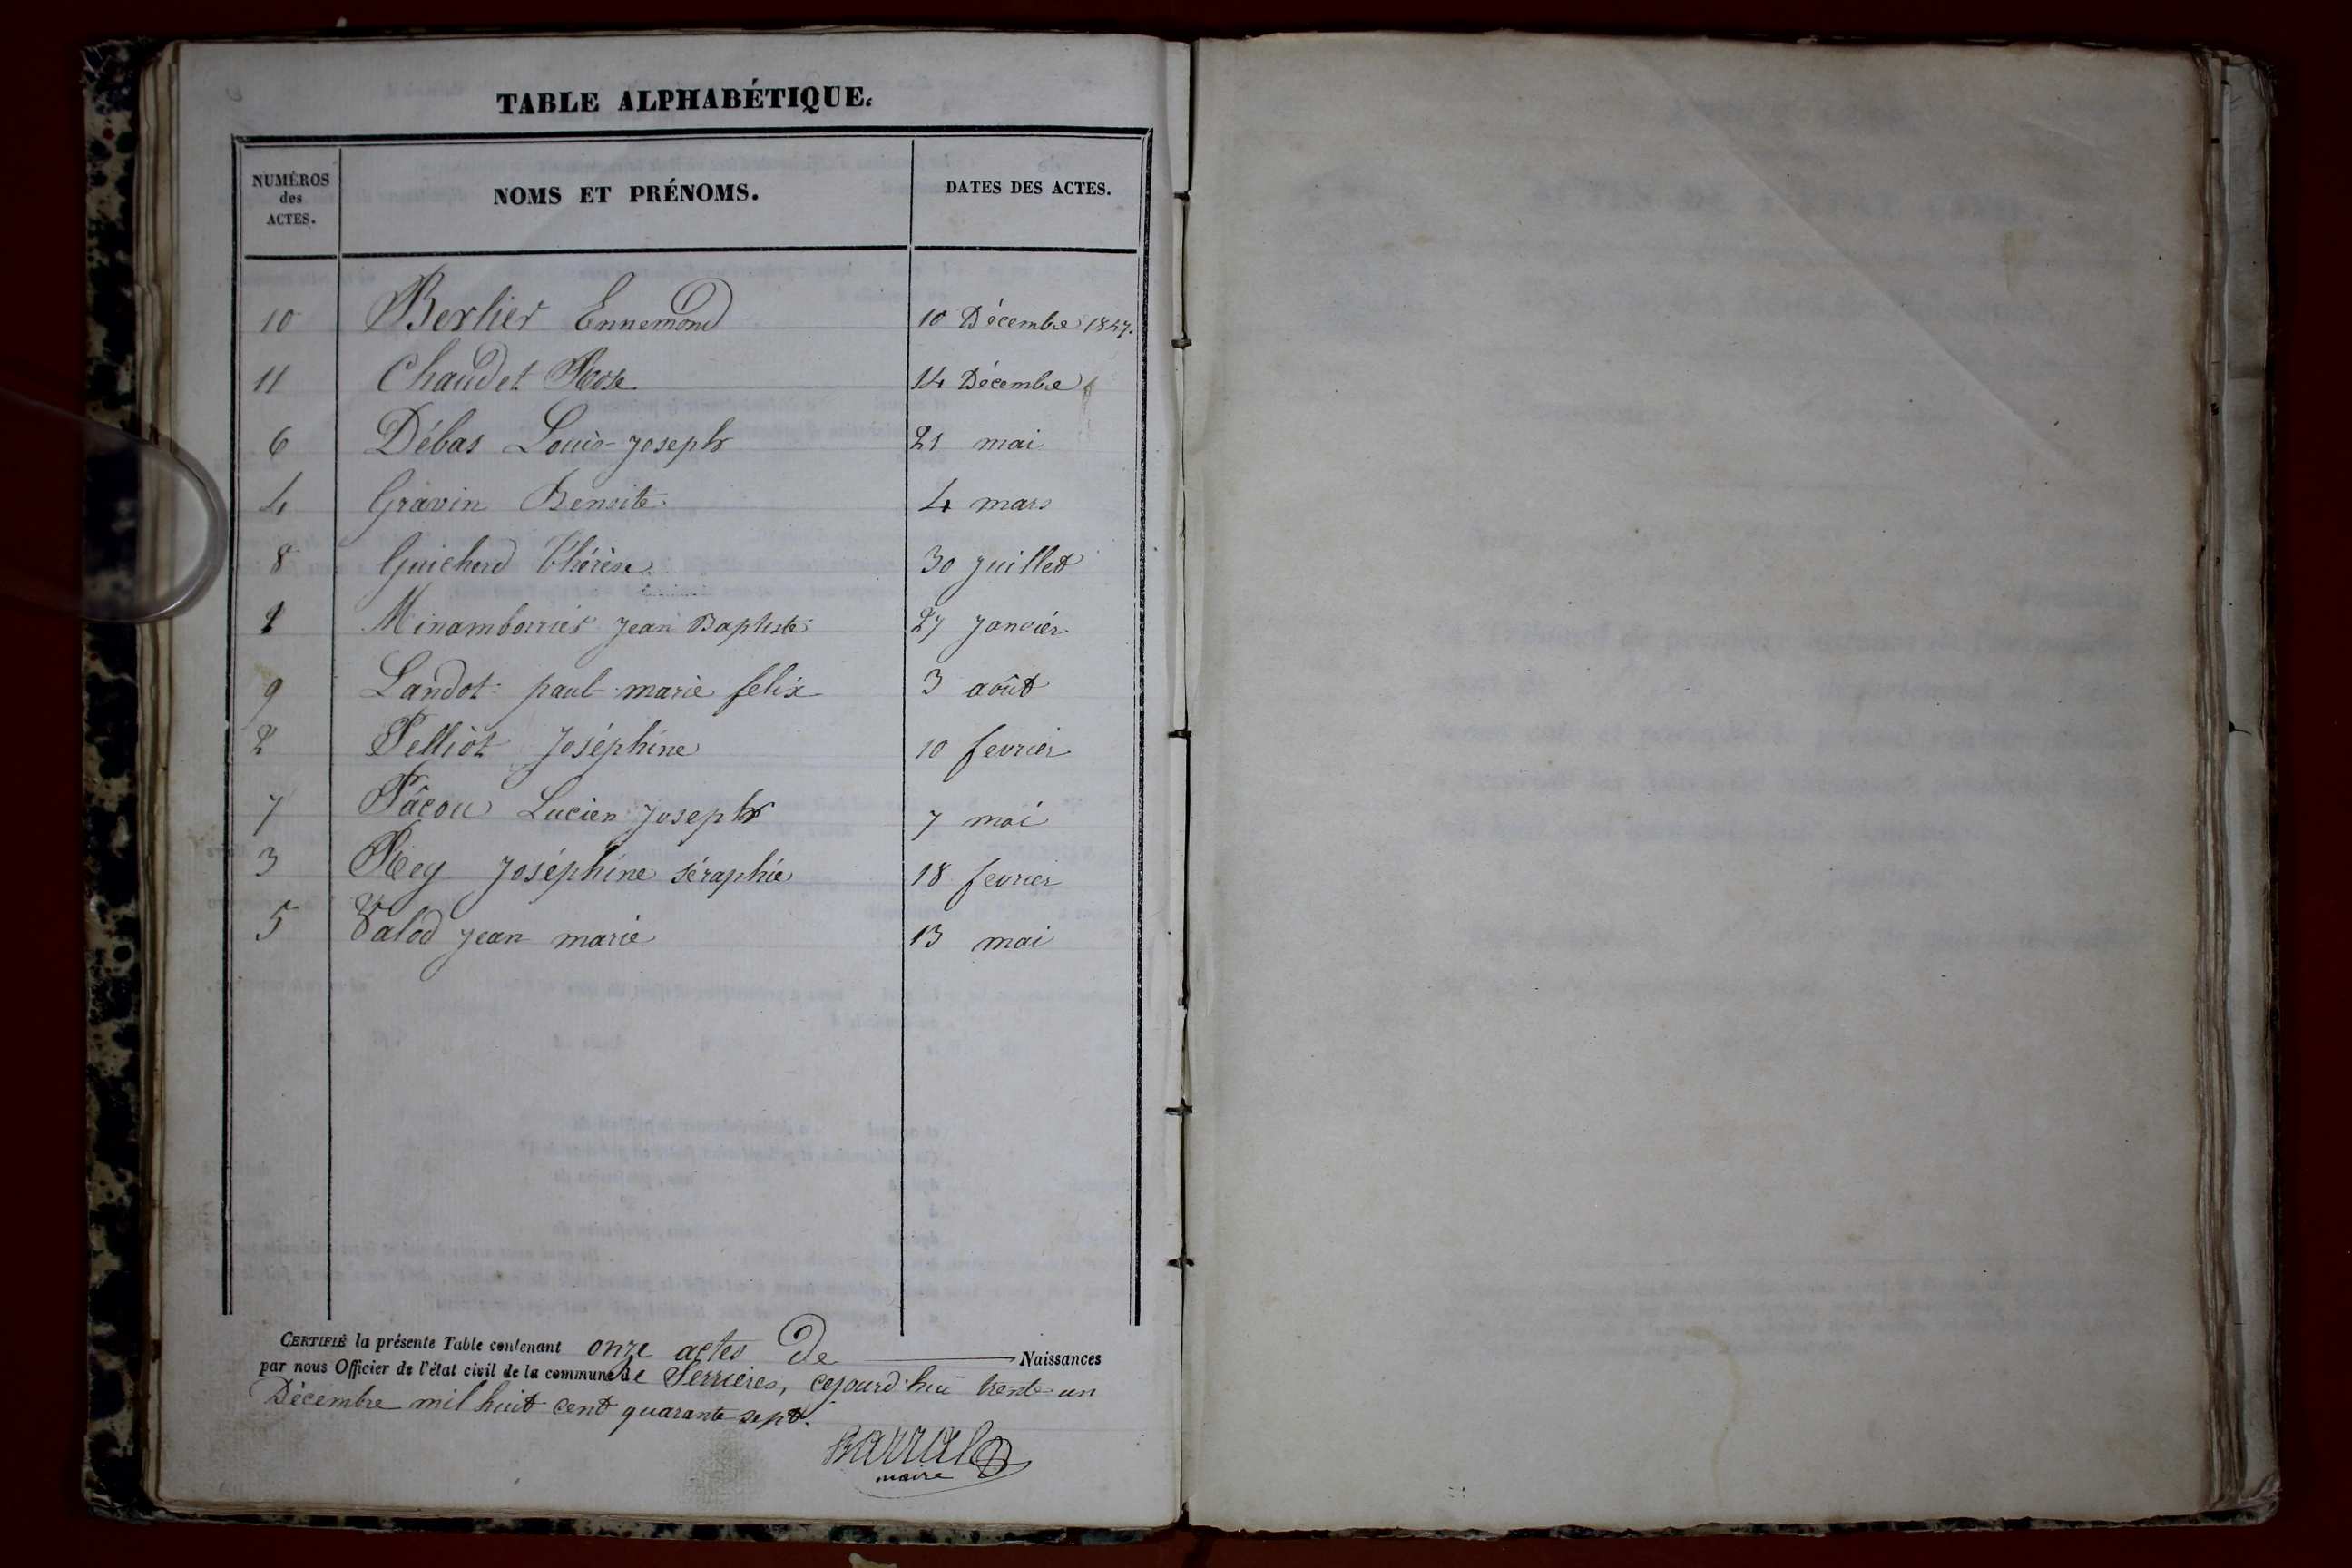 TABLE ALPHABÉTIQUE.
NUMÉROS des ACTES. NOMS ET PRÉNOMS. DATES DES ACTES.
10 Berlier Ennemond 10 Décembre 1847.
11 Chaudet Rose 14 Décembre
6 Débas Louis-joseph 21 mai
4 Gravin Benoite 4 mars
8 Guicherd Thérèse 30 juillet
1 Minambarrier jean Baptiste 27 janvier
9 Landot paul marie felix 3 août
2 Pelliot joséphine 10 fevrier
7 Pâcou Lucien joseph 7 mai
3 Rey joséphine séraphie 18 fevrier
5 Valod jean marie 13 mai
CERTIFIÉ la présente Table contenant onze actes De Naissances
par nous Officier de l'état civil de la commune de Serrieres, cejourd'hui trente-un
Décembre mil huit cent quarante sept.
Barral
maire